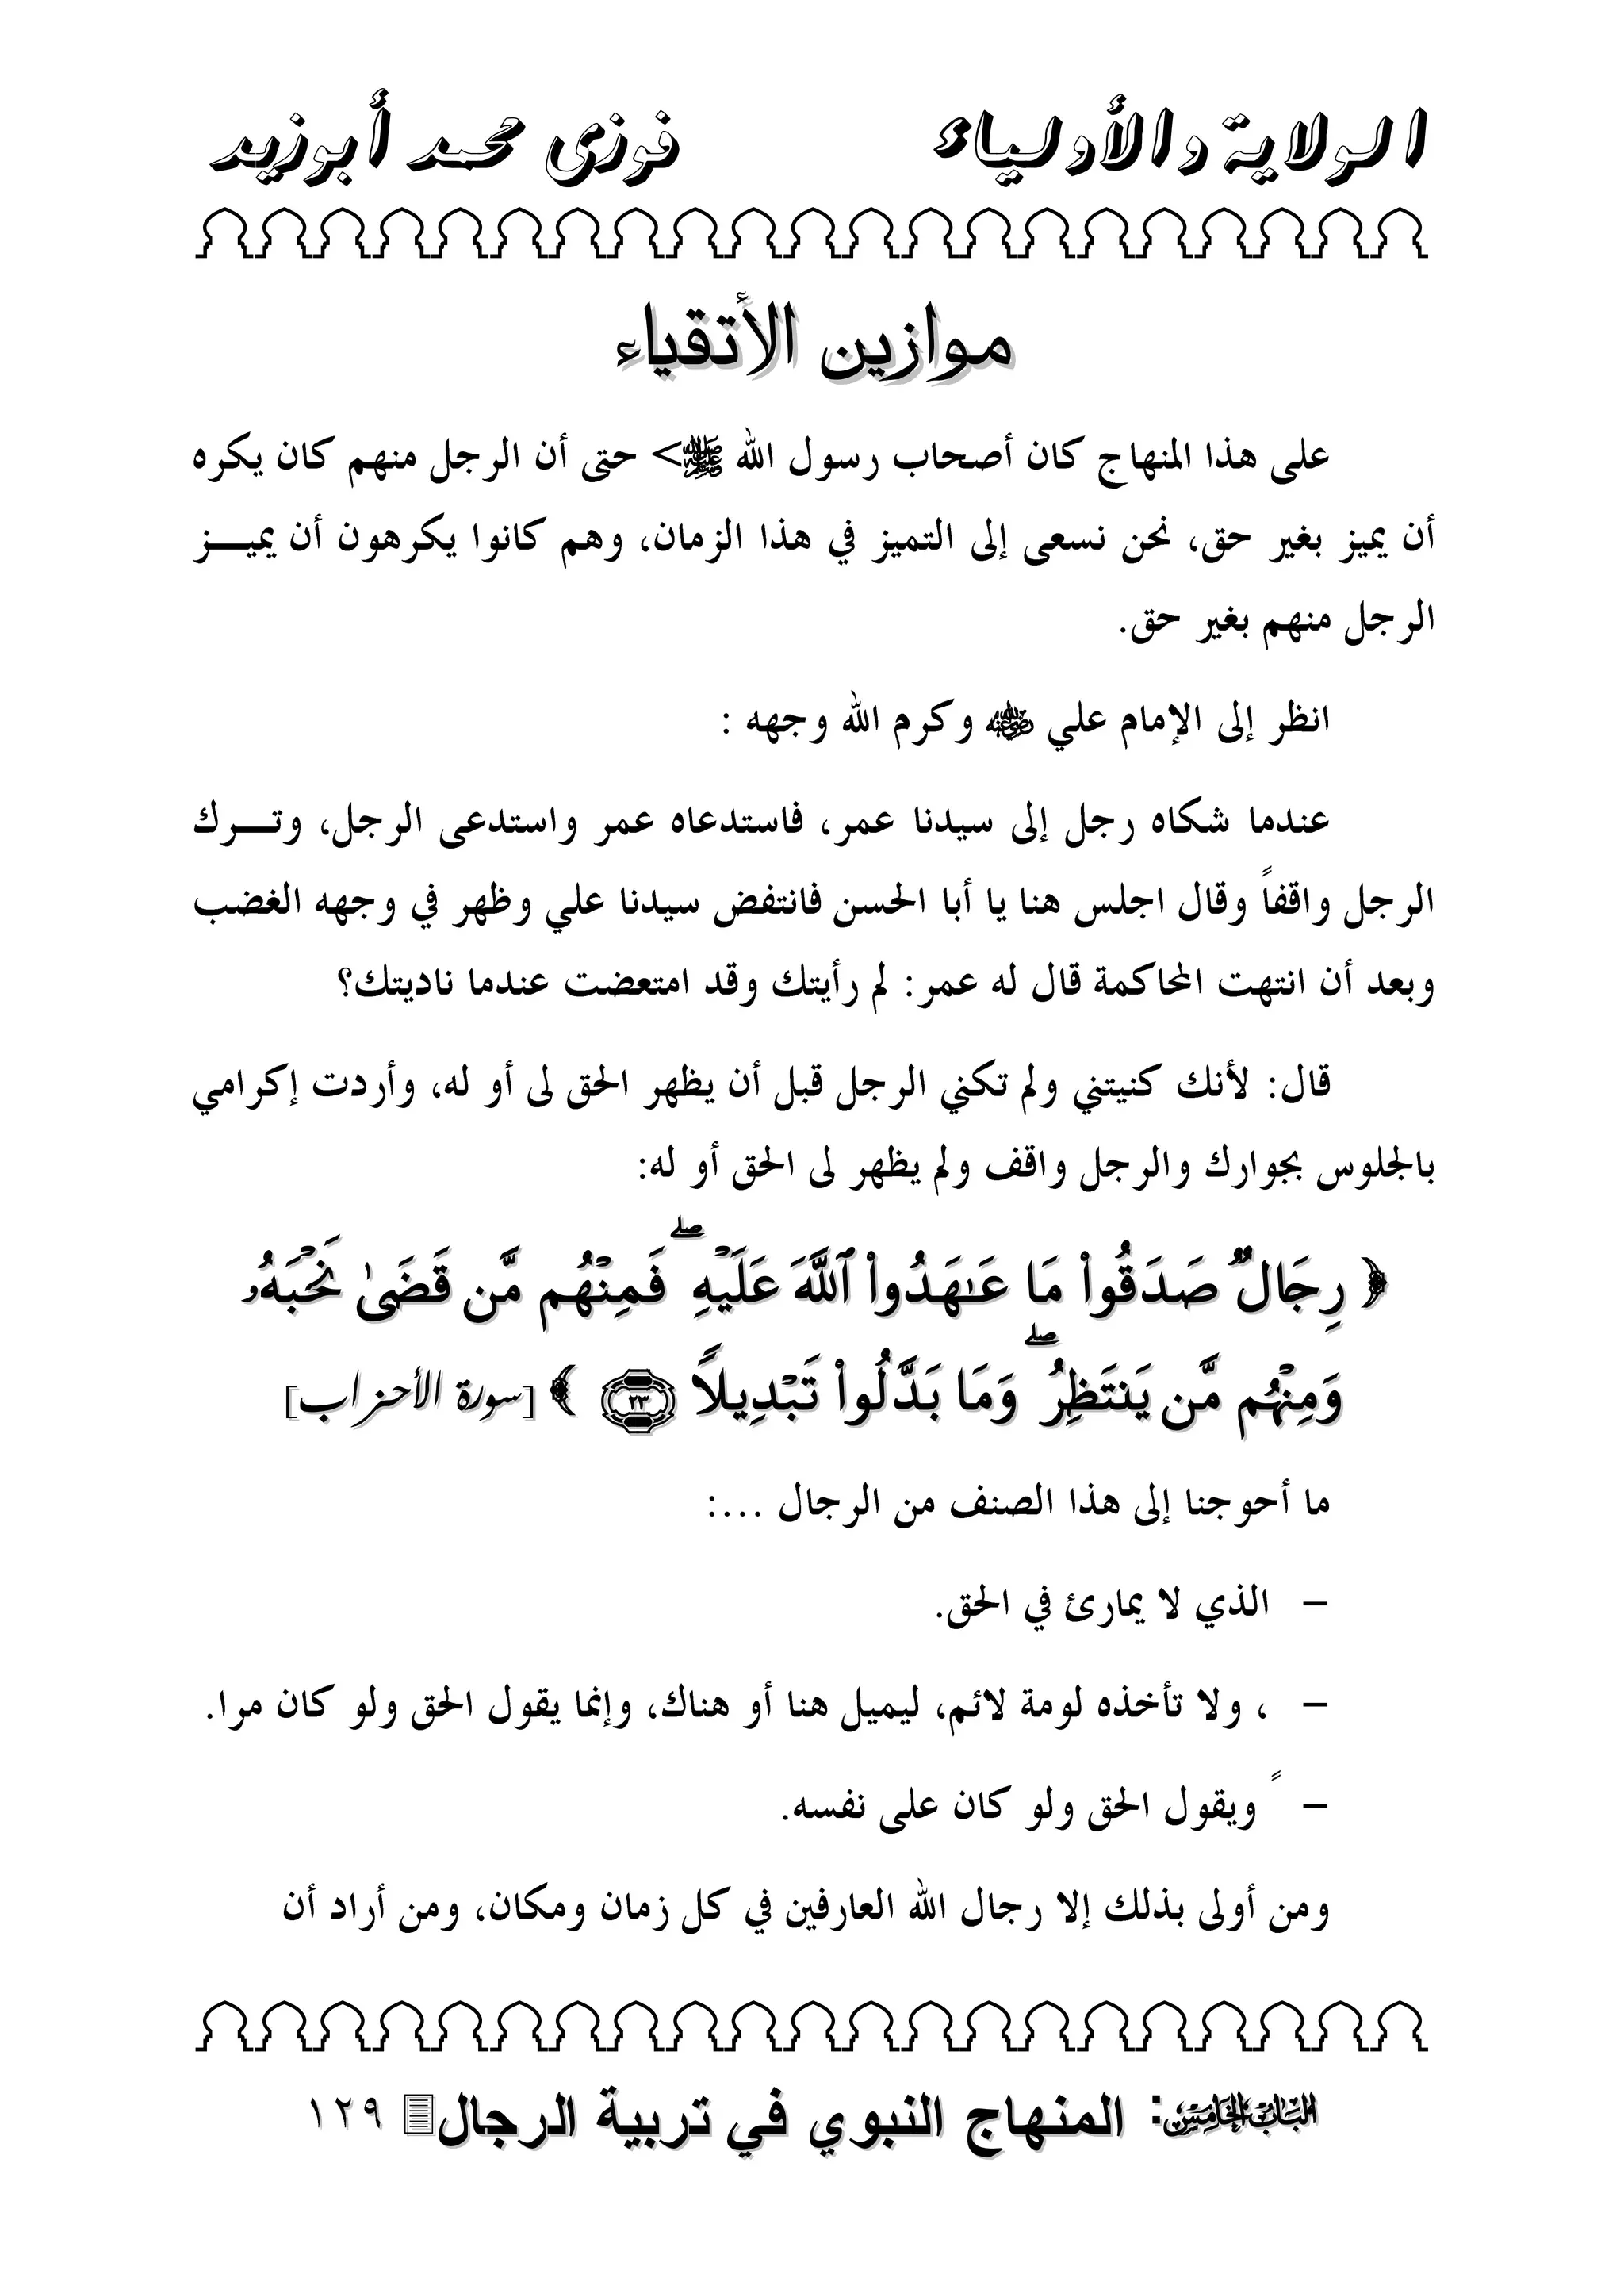 الولاية والأولياء فوزى محمد أبوزيد
موازين الأتقياء
على هذا المنهاج كان أصحاب رسول الله ﷺ> حتى أن الرجل منهم كان يكره
أن يميز بغير حق، نحن نسعى إلى التميز في هذا الزمان، وهم كانوا يكرهون أن يميـــز
الرجل منهم بغير حق.
انظر إلى الإمام علي رضي الله عنه وكرم الله وجهه :
عندما شكاه رجل إلى سيدنا عمر، فاستدعاه عمر واستدعى الرجل، وتـــرك
الرجل واقفاً وقال اجلس هنا يا أبا الحسن فانتفض سيدنا علي وظهر في وجهه الغضب
وبعد أن انتهت المحاكمة قال له عمر: لم رأيتك وقد امتعضت عندما ناديتك؟
قال: لأنك كنيتني ولم تكني الرجل قبل أن يظهر الحق لى أو له، وأردت إكرامي
بالجلوس بجوارك والرجل واقف ولم يظهر لى الحق أو له:
﴿ رِجَالٌ صَدَقُوا۟ مَا عَـٰهَدُوا۟ ٱللَّهَ عَلَيْهِ ۖ فَمِنْهُم مَّن قَضَىٰ نَحْبَهُۥ
وَمِنْهُم مَّن يَنتَظِرُ ۖ وَمَا بَدَّلُوا۟ تَبْدِيلاً ٢٣ ﴾ [سورة الأحزاب]
ما أحوجنا إلى هذا الصنف من الرجال ...:
- الذي لا يمارئ في الحق.
- ، ولا تأخذه لومة لائم، ليميل هنا أو هناك، وإنما يقول الحق ولو كان مرا.
- ً ويقول الحق ولو كان على نفسه.
ومن أولى بذلك إلا رجال الله العارفين في كل زمان ومكان، ومن أراد أن
الباب الخامس: المنهاج النبوي في تربية الرجال ١٢٩